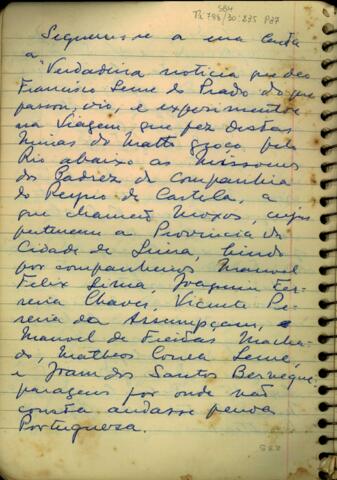 SBH
Pa 798/30:235 P27
Seguem-se a esta carta
a "Verdadeira noticia que deo
Francisco Leme do Prado do que
passou, vio, e experimentou
na Viagem que fez destas
Minas do Matto grosso pelo
Rio abaixo as Missoens
dos Padres da Companhia
do Reyno de Castela, a
que chamão Moxos, cujos
pertencem a Provincia da
Cidade de Lima, hindo
por companheiros Manoel
Felix Lima, Joaquim Fer-
reira Chaves, Vicente Pe-
reira da Assumpçam, e
Manoel de Freitas Macha-
do, Matheos Correa Leme,
e Joam dos Santos
paragens por onde não
consta andasse pessoa
Portuguesa.